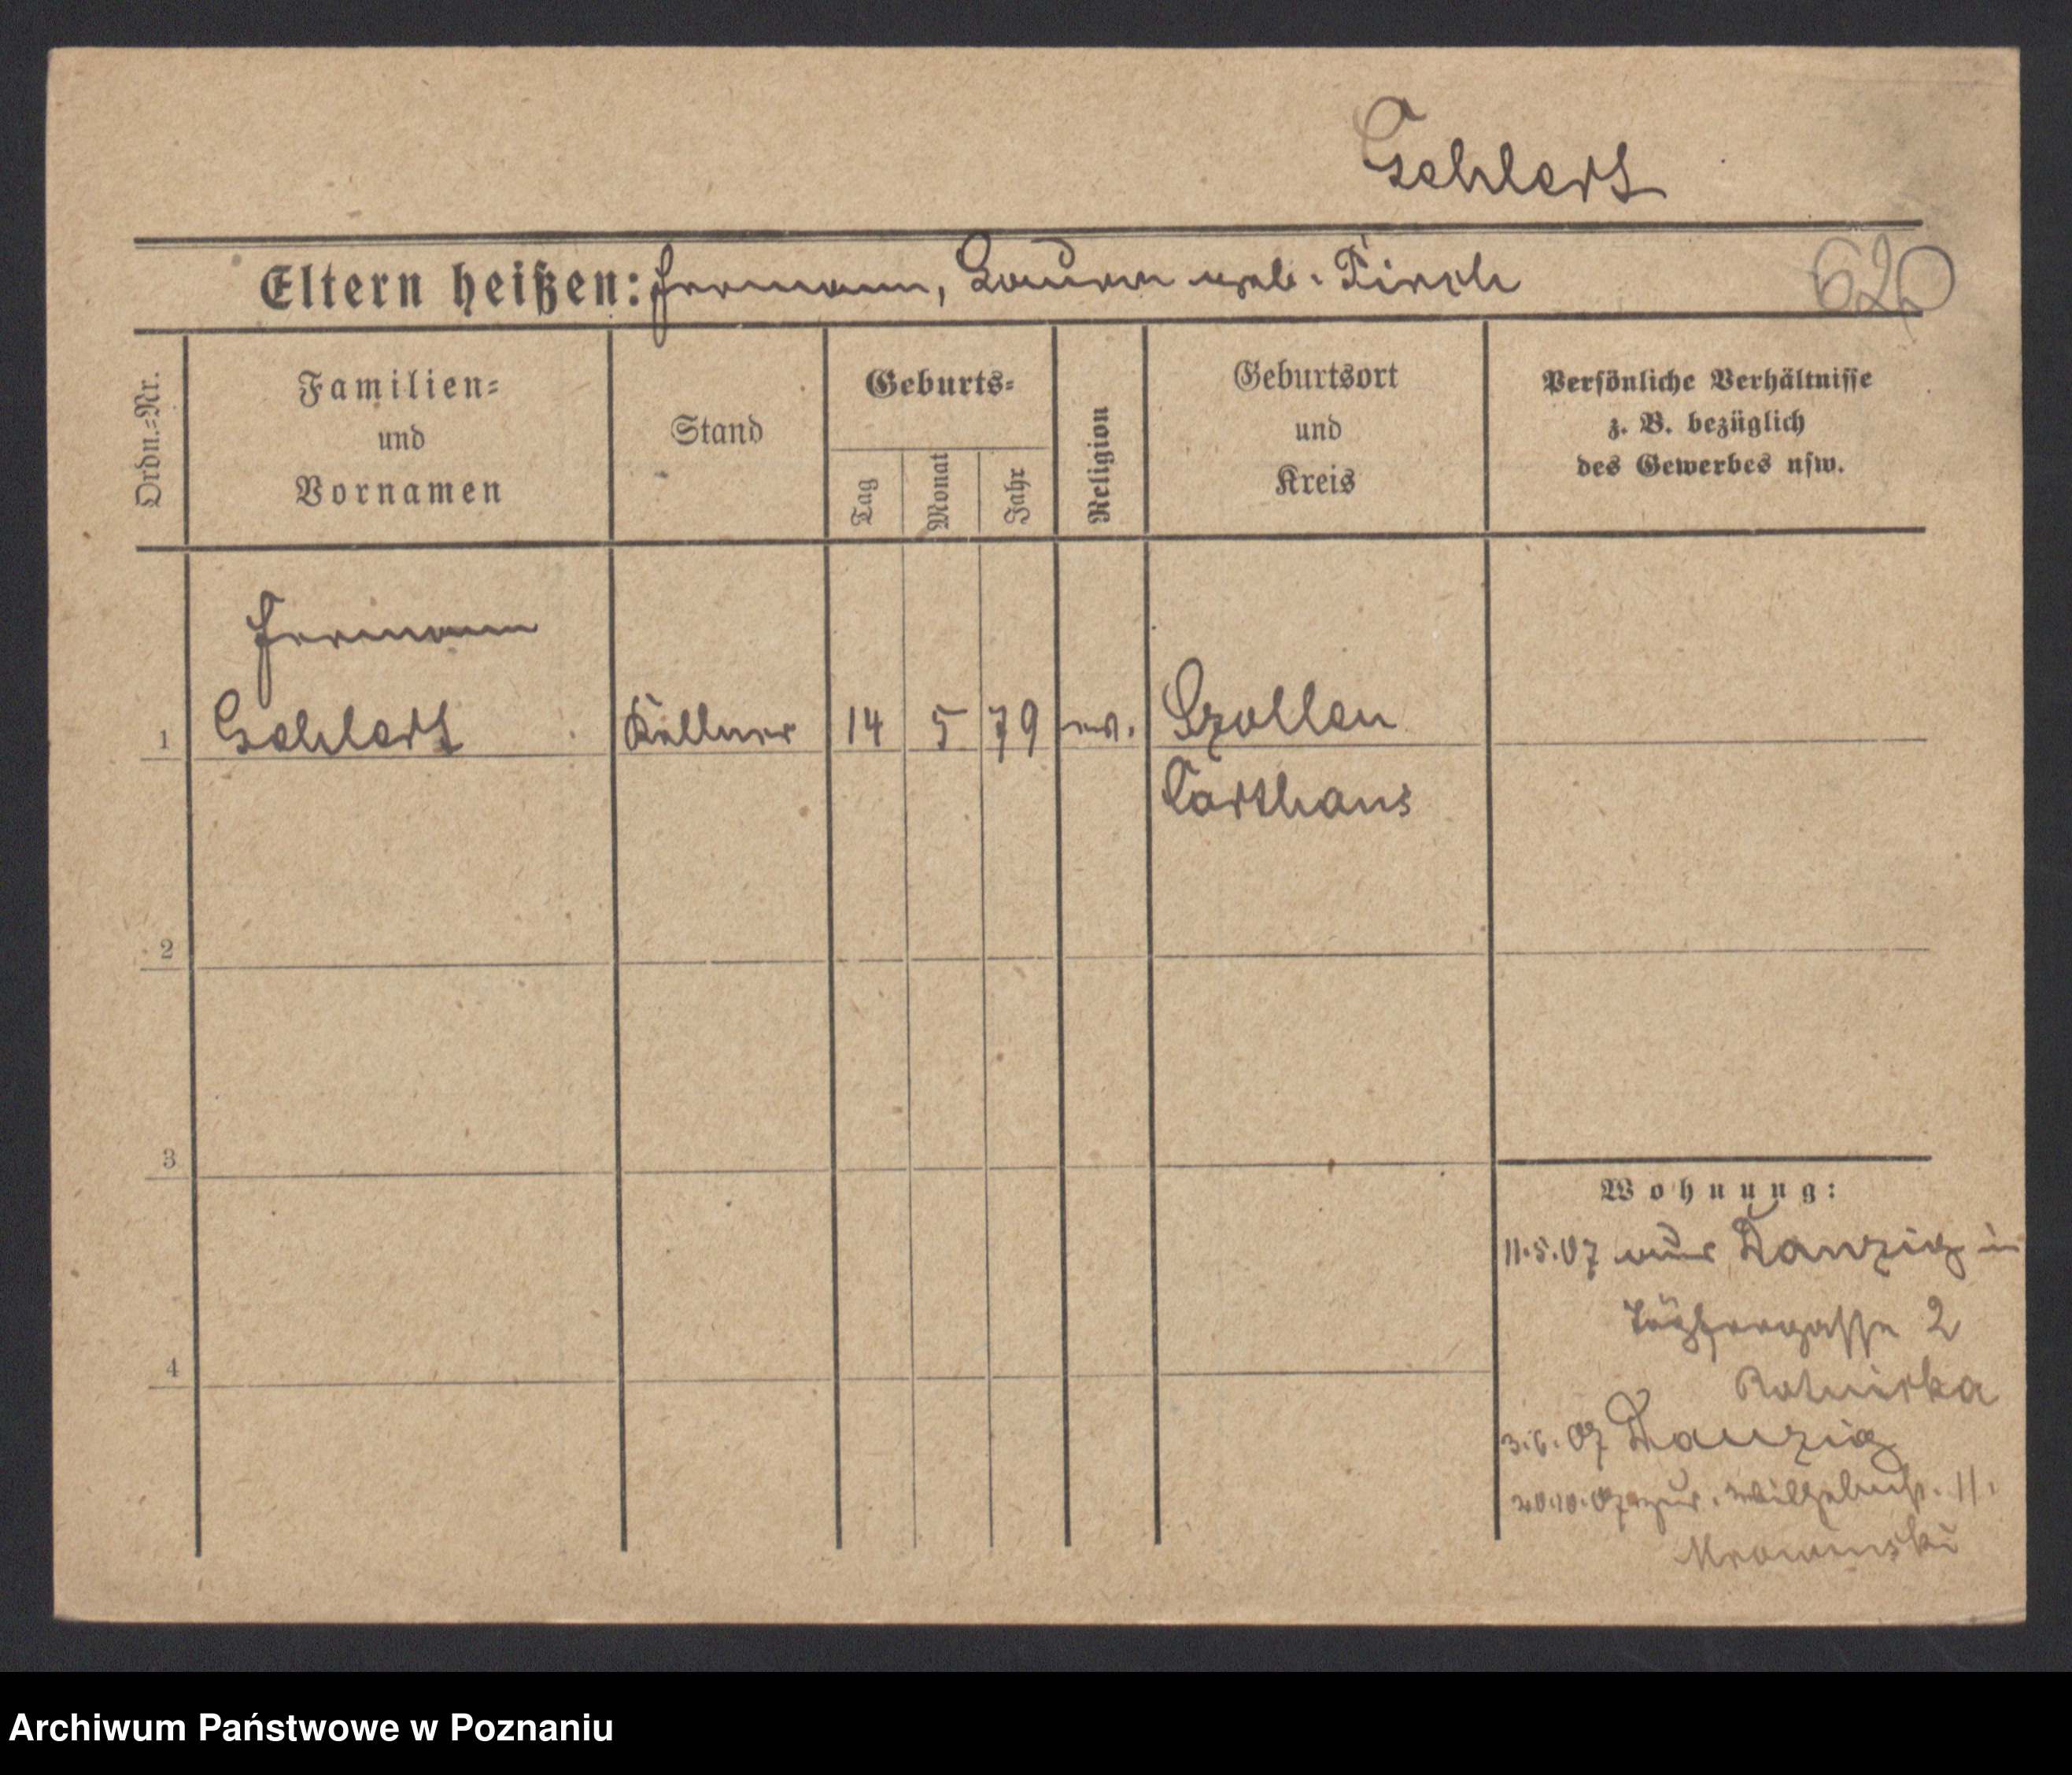 Gehlert
Eltern heißen: Hermann, Laura geb. Pirch
620
Ordn.=Nr.
Familien=
und
Vornamen
Stand
Geburts=
Tag
Monat
Jahr
Religion
Geburtsort
und
Kreis
Persönliche Verhältnisse
z. B. bezüglich
des Gewerbes usw.
Hermann
1 Gehlert Kellner 14 5 79 ev.
Carthaus
2
3
4
Wohnung:
11.5.07 aus Danzig in
Töpfergasse 2
Ratuirka
3.6.07 Danzig
20.10.07 zur. Wilhelmstr. 11.
Mrowinski
Archiwum Państwowe w Poznaniu